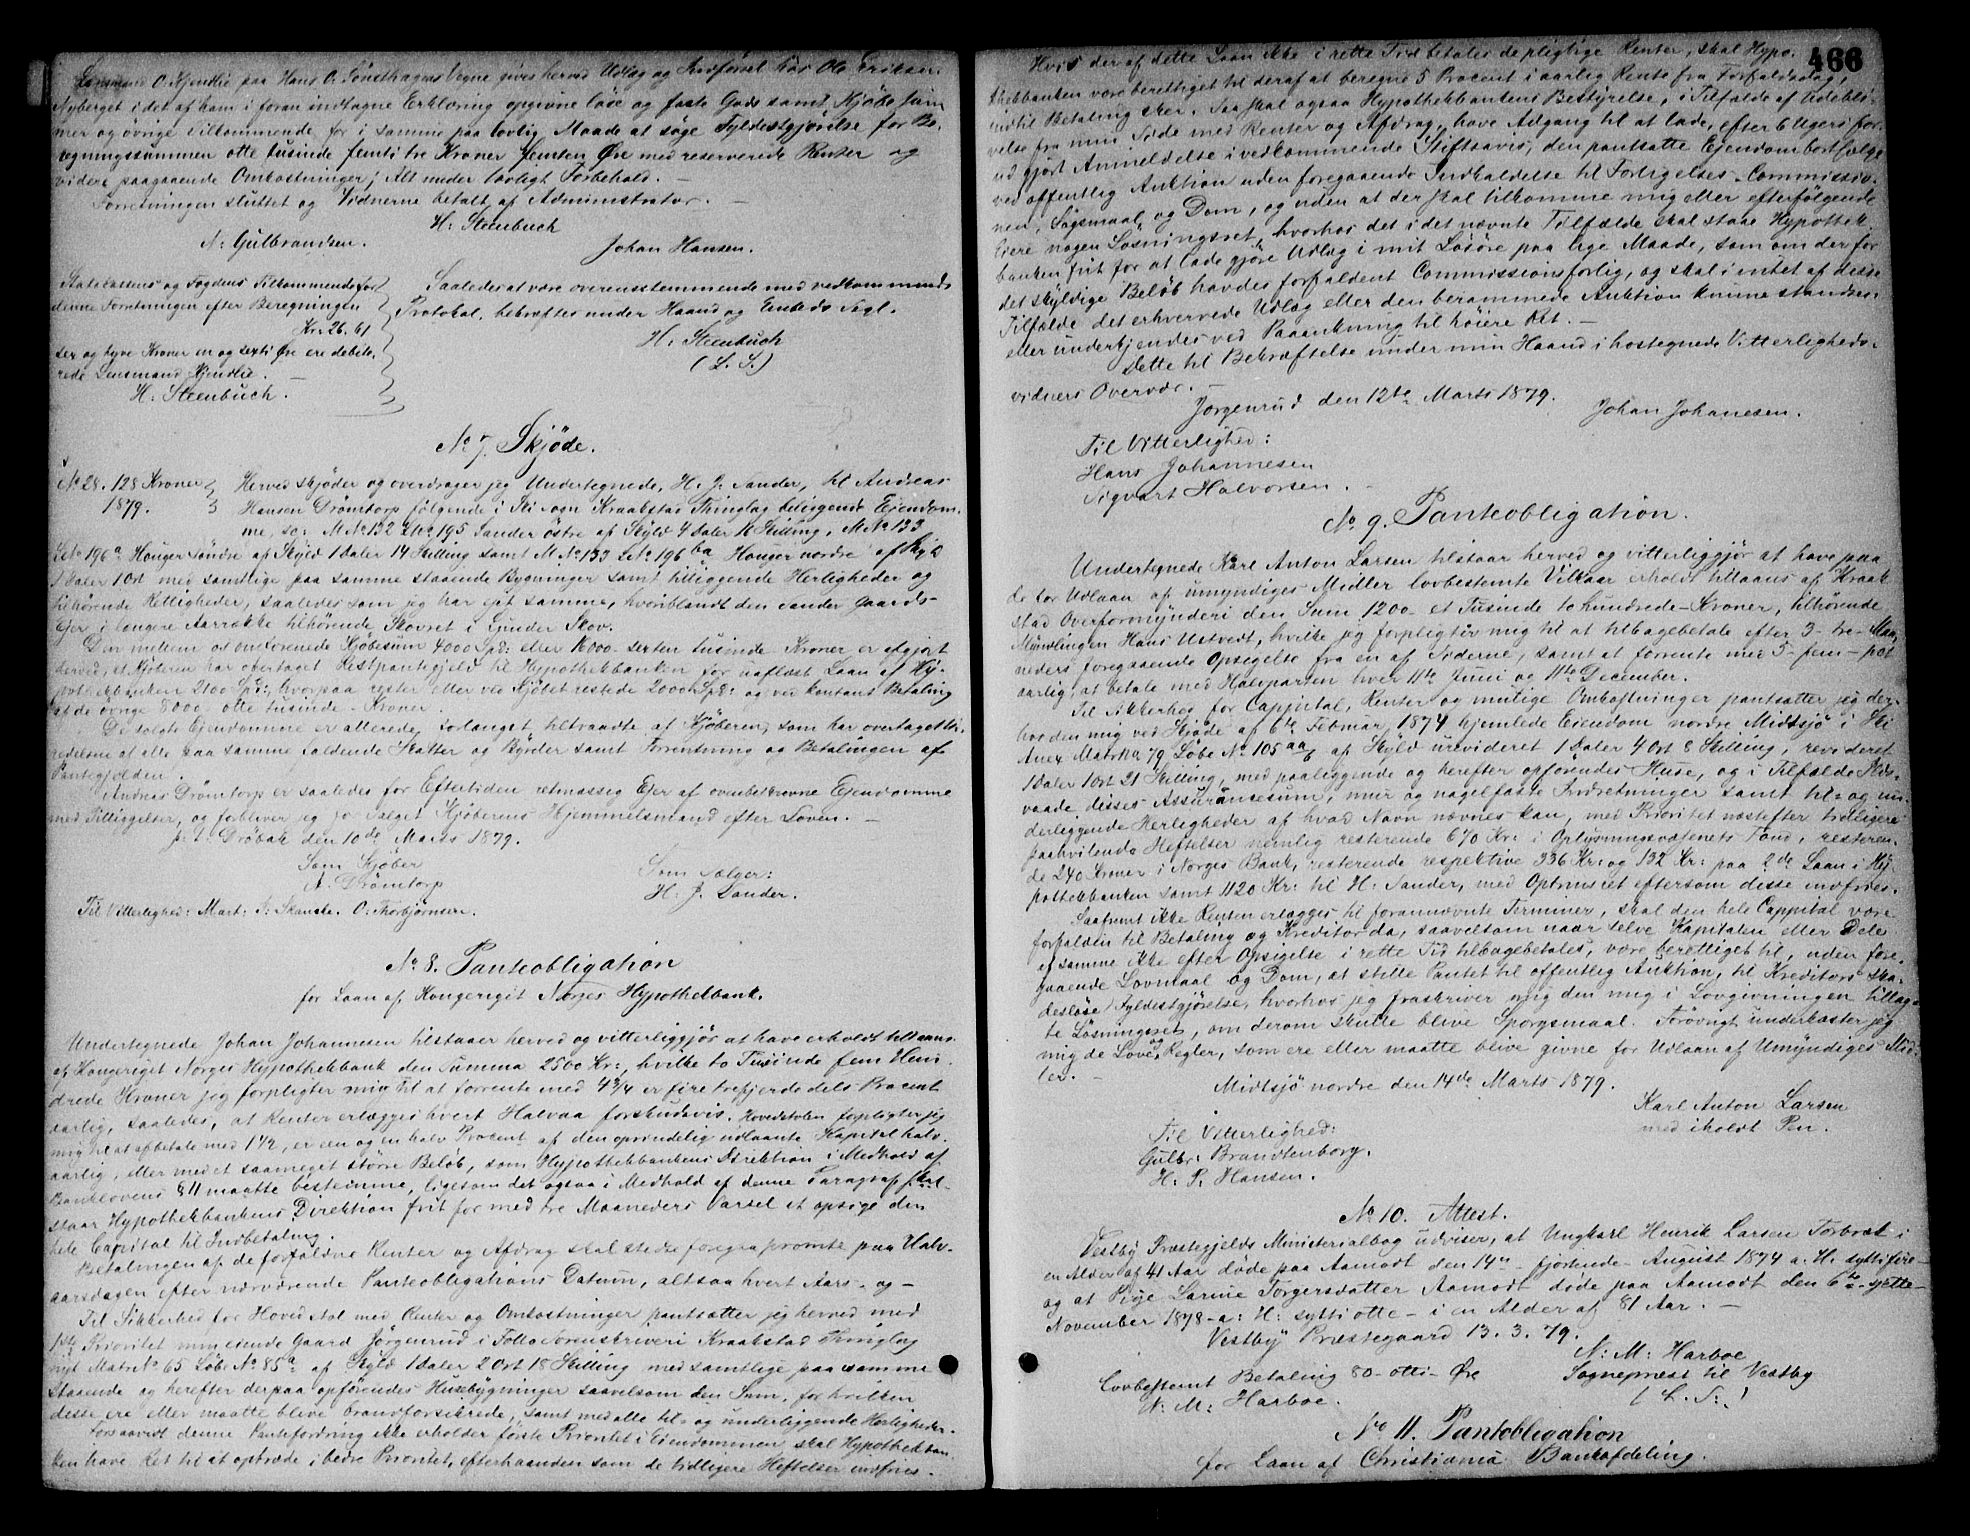 Lensmand O. Kjendlie paa Hans O. Tönsthagens Vegne gives herved Udlæg og Indförsel hos Ole Eriksen
Nyberget i det af ham i foran indtagne Erklæring opgivne löse og faste Gods samt Kjöbesum
mer og övrige tilkommende for i samme paa lovlig Maade at söge Fyldestgjörelse for Be-
regningssummen otte tusinde femti tre Kroner femten Öre med reserverede Renter og
videre paagaaende Omkostninger; Alt under lovligt Forbehold. —
Forretningen sluttet og Vidnerne betalt af Administrator. —
H. Steenbuch
N. Gulbrandsen. Johan Hansen.
Statskassens og Fogdens Tilkommende for
denne Forretningen efter Beregningen
Kr. 26. 61
sex og tyve Kroner en og sexti Öre ere debite-
rede Lensmand Kjendlie. —
H. Steenbuch.
Saaledes at være overensstemmende med vedkommende
Protokol, bekræftes under Haand og Embeds Segl.
H. Steenbuch
(L. S.)
No 7. Skjöde.
No 28. 128 Kroner
1879.
Herved skjöder og overdrager jeg Undertegnede, H. J. Sander, til Andreas
Hansen Drömtorp fölgende i Ski Sogn Kraakstad Thinglag beliggende Eiendom-
me, so: M No 132 L No 195 Sander östre af Skyld 4 Daler 16 Skilling, M No 133
L No 196a Hauger söndre af Skyld 1 Daler 14 Skilling samt M No 133 L No 196ba Hauger nordre af Skyld
1 Daler 1 Ort med samtlige paa samme staaende Bygninger samt tilliggende Herligheder og
tilhörende Rettigheder, saaledes som jeg har eiet samme, hvoriblandt den Sander Gaards-
Eier i længere Aarrække tilhörende Skovret i Gjuder Skov.
Den mellem os omforenede Kjöbesum 4000 Spd: eller 16000 sexten tusinde Kroner er afgjort
derved, at Kjöberen har overtaget Restpantegjeld til Hypothekbanken for uaflöst Laan af Hy-
pothekbanken 2100 Spd:, hvorpaa rester eller ved Kjöbet restede 2000 Spd: og ved kontant Betaling
af de övrige 8000 otte tusinde Kroner.
De solgte Eiendomme er allerede forlængst tiltraadte af Kjöberen, som har overtaget Ud-
redelsen af alle paa samme faldende Skatter og Byrder samt Forrentning og Betalingen af
Pantegjelden.
Andreas Drömtorp er saaledes for Eftertiden retmæssig Eier af ovenbeskrevne Eiendomme
med Tilliggelser, og forbliver jeg som Sælger Kjöberens Hjemmelsmand efter Loven. —
p. t. Dröbak den 10de Marts 1879.
Som Kjöber
A. Drömtorp
Som Sælger:
H. J. Sander.
Til Vitterlighed: Mart: S: Skanche. O. Thorbjörnsen.
No 8. Panteobligation
for Laan af Kongeriget Norges Hypothekbank.
Undertegnede Johan Johannesen tilstaaer herved og vitterliggjör at have erholdt tillaans
af Kongeriget Norges Hypothekbank den Summa 2500 Kr:, hvilke to Tusinde fem Hun-
drede Kroner jeg forpligter mig til at forrente med 4 3/4 er fire trefjerdedels Procent
aarlig, saaledes, at Renter erlægges hvert Halvaar forskudsvis. Hovedstolen forpligter jeg
mig til at afbetale med 1 1/2, er en og en halv Procent af den oprindelig udlaante Kapital halv-
aarlig, eller med et saameget större Belöb, som Hypothekbankens Direktion i Medhold af
Banklovens § 11 maatte bestemme, ligesom det ogsaa i Medhold af denne Paragraf skal
staar Hypothekbankens Direktion frit for med tre Maaneders Varsel at opsige den
hele Capital til Indbetaling.
Betalingen af de forfaldne Renter og Afdrag skal stedse foregaa promte paa Halv-
aarsdagen efter nærværende Panteobligations Datum, altsaa hvert Aars — og —
Til Sikkerhed for Hovedstol med Renter og Omkostninger pantsætter jeg herved med
1ste Prioritet min eiende Gaard Jörgenrud i Follo Sorenskriveri Kraakstad Thinglag
nyt Matr No 65 Löbe No 85a af Skyld 1 Daler 2 Ort 18 Skilling med samtlige paa samme
staaende og herefter derpaa opförendes Husebygninger saavelsom den Sum, for hvilken
disse ere eller maatte blive brandforsikrede, samt med alle til- og underliggende Herligheder.
Forsaavidt denne Pantefordring ikke erholder förste Prioritet i Eiendommen, skal Hypothekban-
ken have Ret til at optræde i bedre Prioritet, efterhaanden som de tidligere Heftelser indfries.
466
Hvis der af dette Laan ikke i rette Tid betales de pligtige Renter, skal Hypo-
thekbanken være berettiget til deraf at beregne 5 Procent i aarlig Rente fra Forfaldsdag,
indtil Betaling sker. Saa skal ogsaa Hypothekbankens Bestyrelse, i Tilfælde af Udebli-
velse fra min Side med Renter og Afdrag, have Adgang til at lade, efter 6 Ugers for-
ud gjort Anmeldelse i vedkommende Stiftsavis, den pantsatte Eiendom bortsælge
ved offentlig Auktion uden foregaaende Indkaldelse til Forligelses-Commissio-
nen, Sögsmaal og Dom, og uden at der skal tilkomme mig eller efterfölgende
Eiere nogen Lösningsret, hvorhos det i det nævnte Tilfælde skal staae Hypothek-
banken frit for at lade gjöre Udlæg i mit Lösöre paa lige Maade, som om der for
det skyldige Belöb havdes forfaldent Commissionsforlig, og skal i intet af disse
Tilfælde det erhvervede Udlæg eller den berammede Auktion kunne standses
eller underkjendes ved Paaankning til höiere Ret. —
Dette til Bekræftelse under min Haand i hostegnede Vitterligheds-
vidners Overvær. —
Jörgenrud den 12te Marts 1879. Johan Johanesen.
Til Vitterlighed:
Hans Johannesen
Sigvart Halvorsen. —
No 9. Panteobligation.
Undertegnede Karl Anton Larsen tilstaar herved og vitterliggjör at have paa
de for Udlaan af umyndiges Midler lovbestemte Vilkaar erholdt tillaans af Kraak-
stad Overformynderi den Sum 1200 et Tusinde to hundrede Kroner, tilhörende
Myndlingen Hans Ustvedt, hvilke jeg forpligter mig til at tilbagebetale efter 3- tre- Maa-
neders foregaaende Opsigelse fra en af Siderne, samt at forrente med 5- fem- pct
aarlig, at betale med Halvparten hver 11te Juni og 11te December.
Til Sikkerhed for Cappital, Renter og mulige Omkostninger pantsætter jeg der-
hos den mig ved Skjöde af 6te Februar 1874 hjemlede Eiendom nordre Midtsjö i Ski
Anex Matr No 79 Löbe No 105aa6 af Skyld urevideret 1 Daler 4 Ort 8 Skilling, revideret
1 Daler 1 Ort 21 Skilling, med paaliggende og herefter opförendes Huse, og i Tilfælde Ilds-
vaade disses Assuransesum, mur og nagelfaste Indretninger samt til- og un-
derliggende Herligheder af hvad Navn nævnes kan, med Prioritet næstefter tidligere
paahvilende Heftelser nemlig resterende 670 Kr: i Oplysningsvæsenets Fond, resteren-
de 240 Kroner i Norges Bank, resterende respektive 336 Kr: og 132 Kr: paa 2de Laan i Hy-
pothekbanken samt 1120 Kr: til H: Sander, med Optrinsret eftersom disse indfries.
Saafremt ikke Renten erlægges til forannævnte Terminer, skal den hele Cappital være
forfalden til Betaling og Kreditor da, saavelsom naar selve Kapitalen eller Dele
af samme ikke efter Opsigelse i rette Tid tilbagebetales, være berettiget til, uden fore-
gaaende Lovmaal og Dom, at stille Pantet til offentlig Auktion, til Kreditors ska-
deslöse Fyldestgjörelse, hvorhos jeg fraskriver mig den mig i Lovgivningen tillag-
te Lösningsret, om derom skulde blive Spörgsmaal. Forövrigt underkaster jeg
mig de Love og Regler, som ere eller maatte blive givne for Udlaan af Umyndiges Mid-
ler. —
Midtsjö nordre den 14de Marts 1879.
Karl Anton Larsen
med iholdt Pen.
Til Vitterlighed:
Gulbr: Brandtenborg.
H. P. Hansen.
No 10. Attest.
Vestby Præstegjelds Ministerialbog udviser, at Ungkarl Henrik Larsen Torbræt i
en Alder af 41 Aar döde paa Aamodt den 14de fjortende August 1874 a. H. sytti fire —
og at Pige Larine Torgersdatter Aamodt döde paa Aamodt den 6te sjette
November 1878 a: H: sytti otte — i en Alder af 81 Aar. —
Vestby Præstegaard 13. 3. 79.
N: M: Harboe
Sognepræst til Vestby
(L. S:)
Lovbestemt Betaling 80- otti- Öre
N: M: Harboe.
No 11. Panteobligation
for Laan af Christiania Bankafdeling.